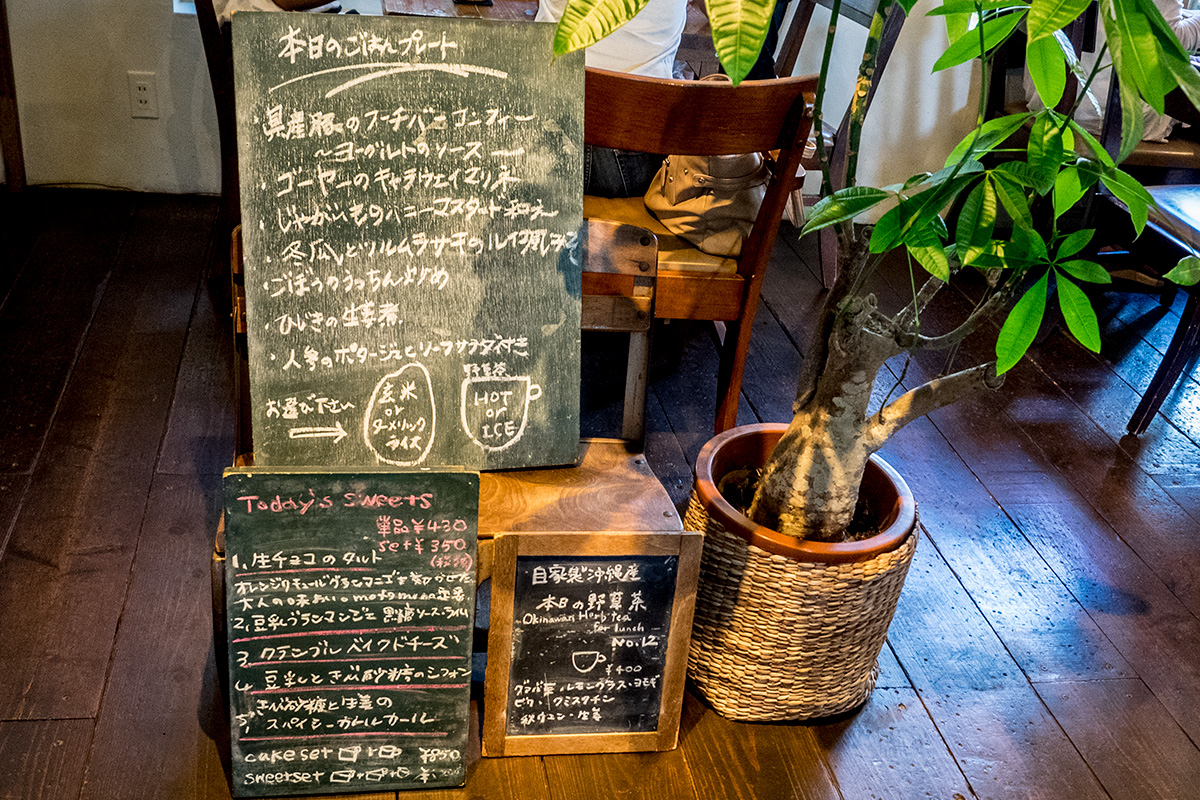 本日のごはんプレート
・県産豚のフーチバーコンフィー
〜ヨーグルトのソース〜
・ゴーヤーのキャラウェイマリネ
・じゃがいものハニーマスタード和え
・冬瓜とツルムラサキの
・ごぼうのうっちん炒め
・ひじきの生姜煮
・人参のポタージュとリーフサラダ付き
お選び下さい
玄米
or
ターメリック
ライス
野草茶
HOT
or
ICE
Today's Sweets
単品¥430
set¥350
1, 生チョコのタルト
オレンジキュール グランマニエを効かせた
大人の味わい
2, 豆乳ブランマンジェ 黒糖ソース・ライム
3, クランブルベイクドチーズ
4, 豆乳ときび砂糖のシフォン
5, きび砂糖と生姜の
スパイシーカトルカール
cake set ¥850
sweet set
自家製沖縄産
本日の野草茶
Okinawan Herb tea
for lunch
No.12
¥400
グァバ茶・レモングラス・ヨモギ
ビワ・クミスクチン
秋ウコン・生姜